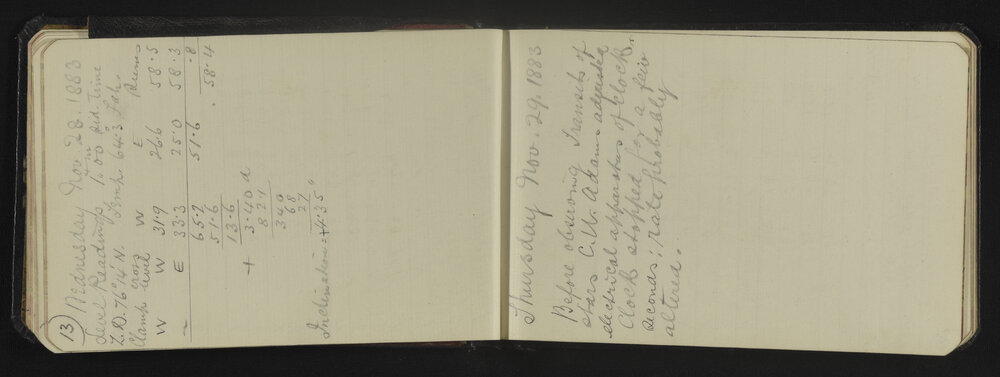 13) Wednesday Nov. 28. 1883
Level Readings 1h 00m sid. time
Z.D. 76°14' N. Temp. 64.3 Fah.
Clamp cross level W E
W W 31.9 26.6 58.5
E 33.3 25.0 58.3
65.2 51.6 .8
51.6 . 58.4
13.6
+ 3.40 d
82.1
340
68
27
Inclination = +4.35"
Thursday Nov. 29. 1883
Before observing Transits of
stars C.W. Adams adjusted
electrical apparatus of clock.
Clock stopped for a few
seconds; rate probably
altered.